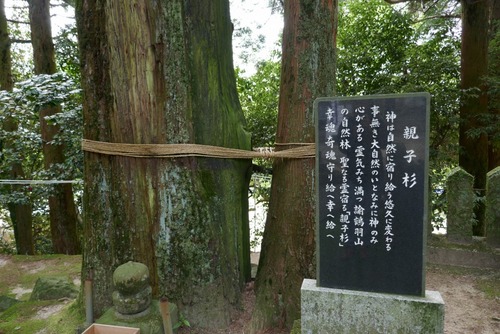 親子杉
神は自然に宿り給う悠久に変わる
事無き大自然のいとなみに神のみ
心がある 霊気みち満つ諭鶴羽山
の自然林 聖なる霊宿る「親子杉」
幸魂 奇魂守り給へ幸へ給へ